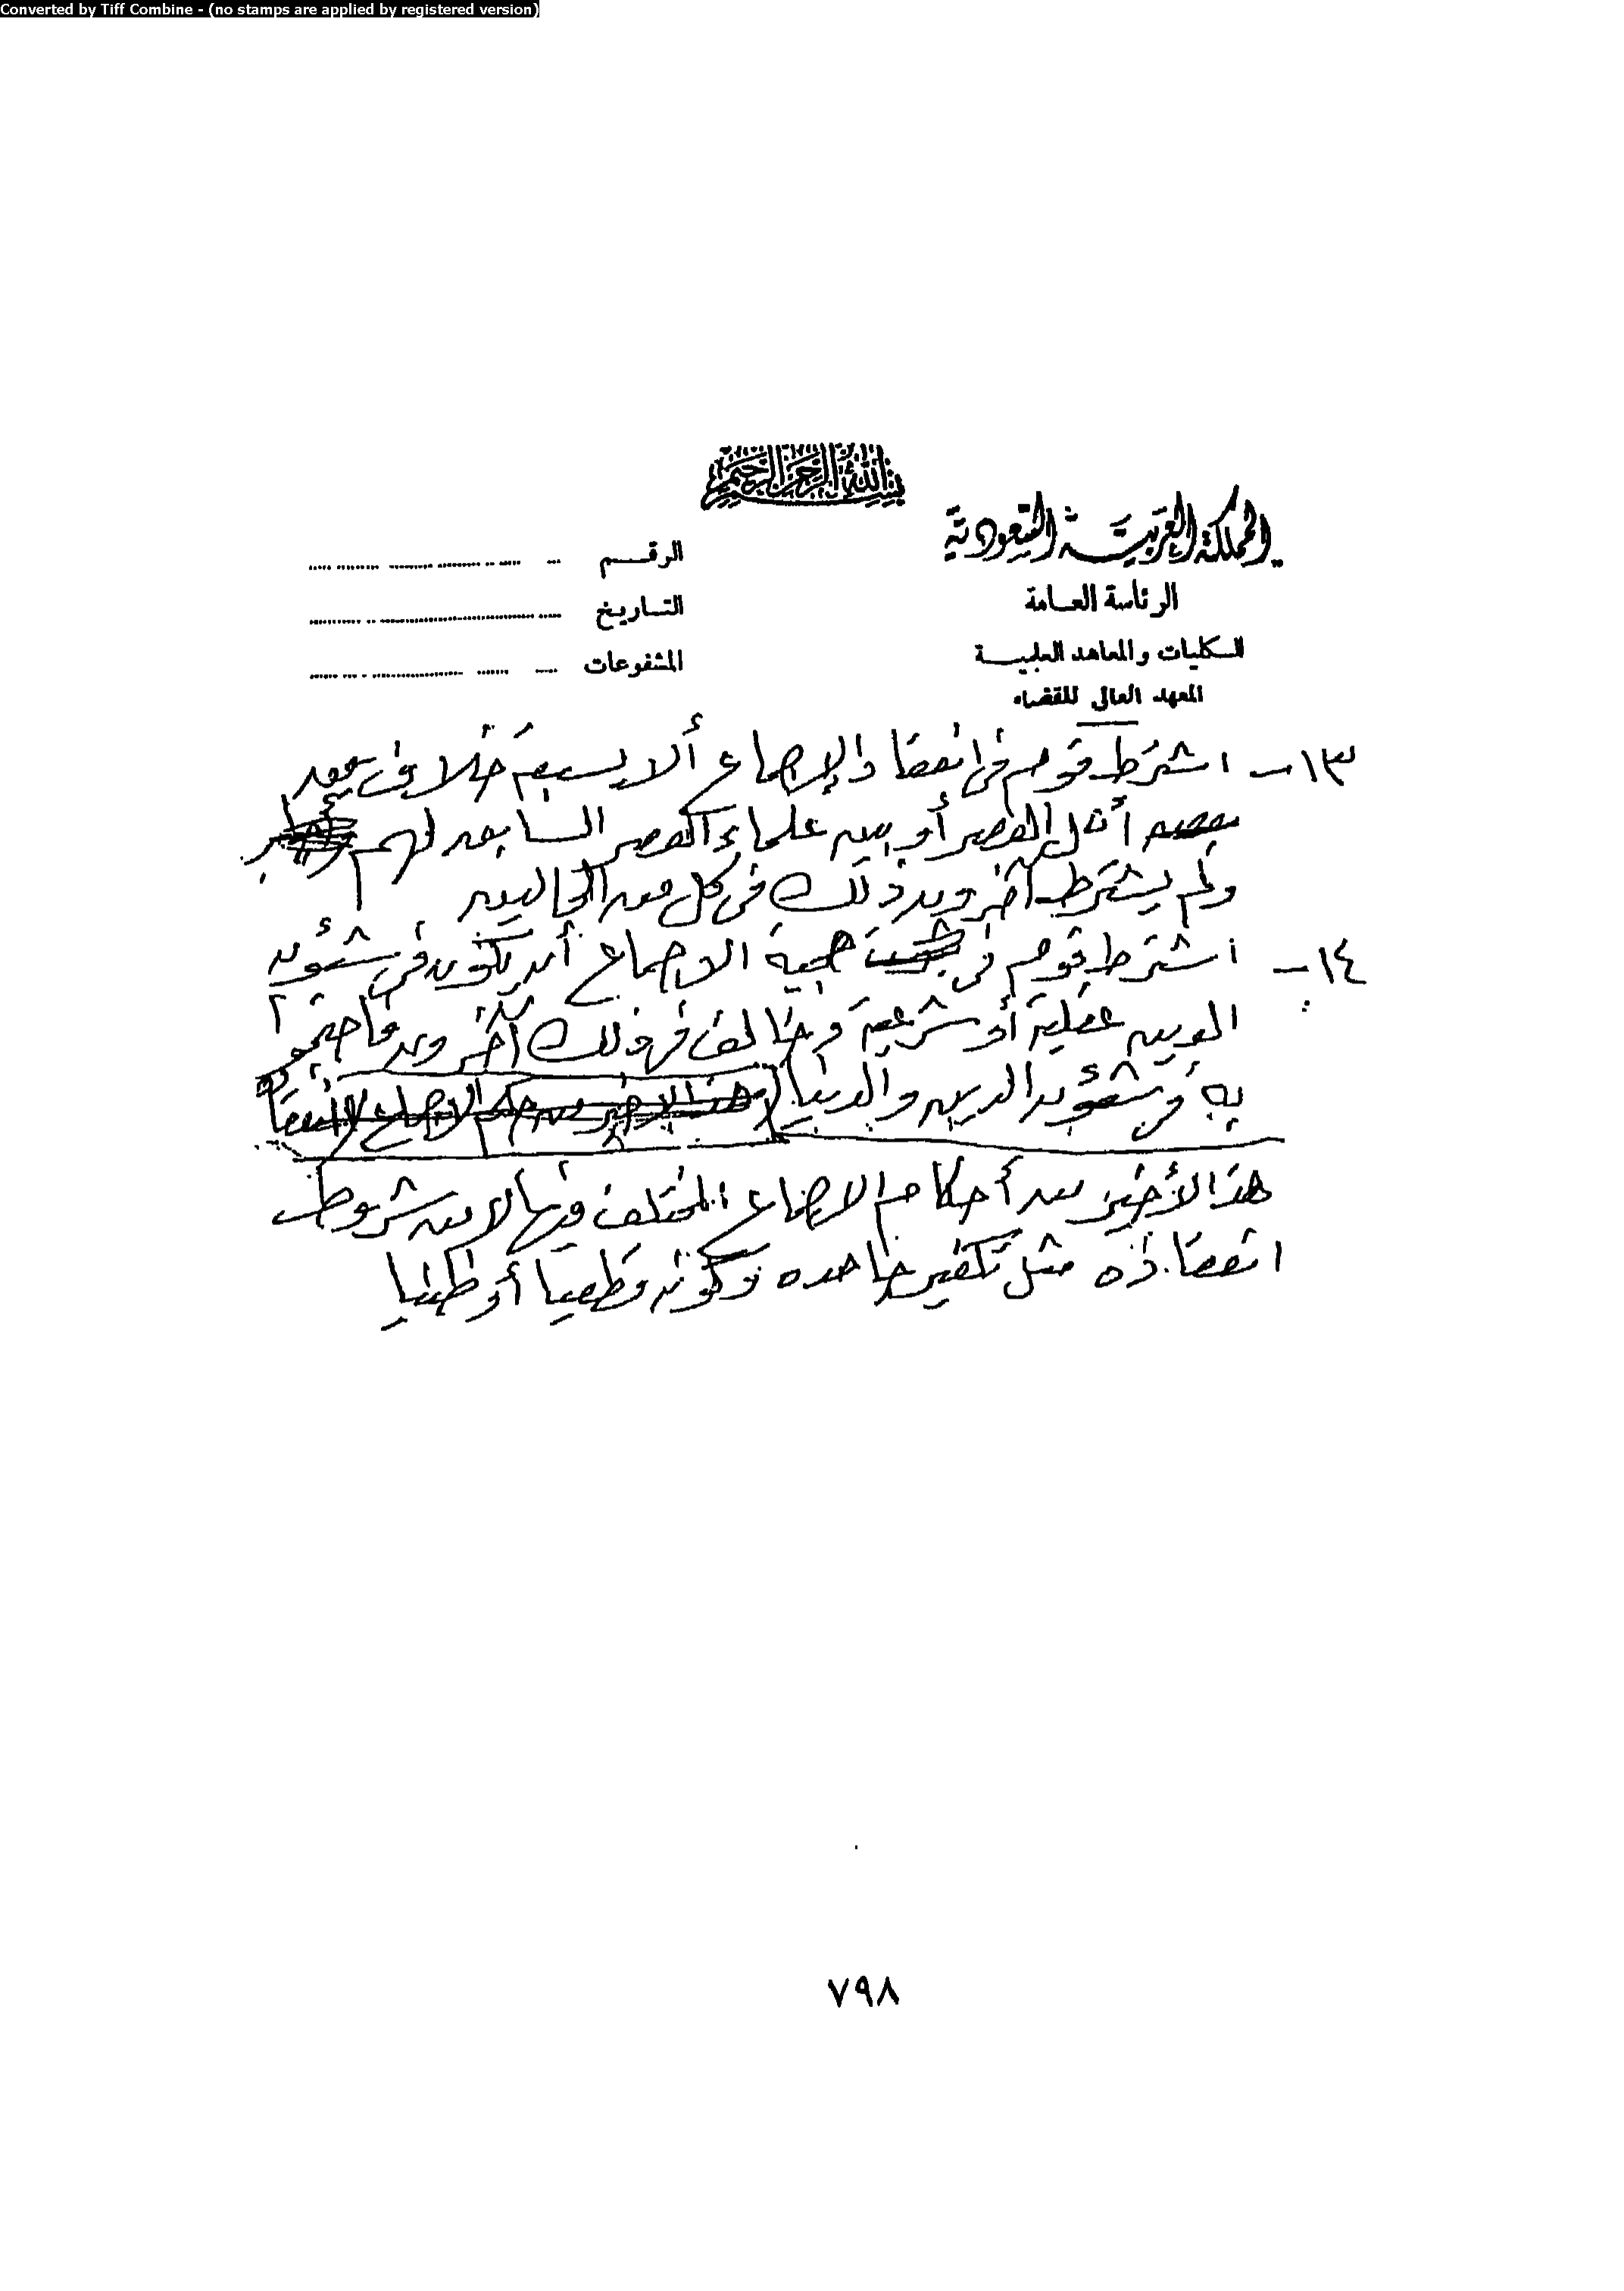 Converted by Tiff Combine - (no stamps are applied by registered version)
بسم الله الرحمن الرحيم
المملكة العربية السعودية
الرئاسة العامة
للكليات والمعاهد العلمية
المعهد العالي للقضاء
الرقم
التاريخ
المشفوعات
١٣ـ اشترط قوم في انعقاد الإجماع ألا يسبقه خلاف من
بعض أهل العصر أو بين علماء العصر السابق لهم
ولم يشترط آخرون ذلك في كل من الحالين
١٤ـ اشترط قوم في حجية الإجماع أن يكون في شئون
الدين عقلية أو شرعية وخالف في ذلك آخرون فاحتجوا
به في شئون الدين والدنيا
هذا الأخير من أحكام الإجماع المختلف فيها لا من شروط
انعقاده مثل تكفير جاحده وكونه قطعيا أو ظنيا
٧٩٨